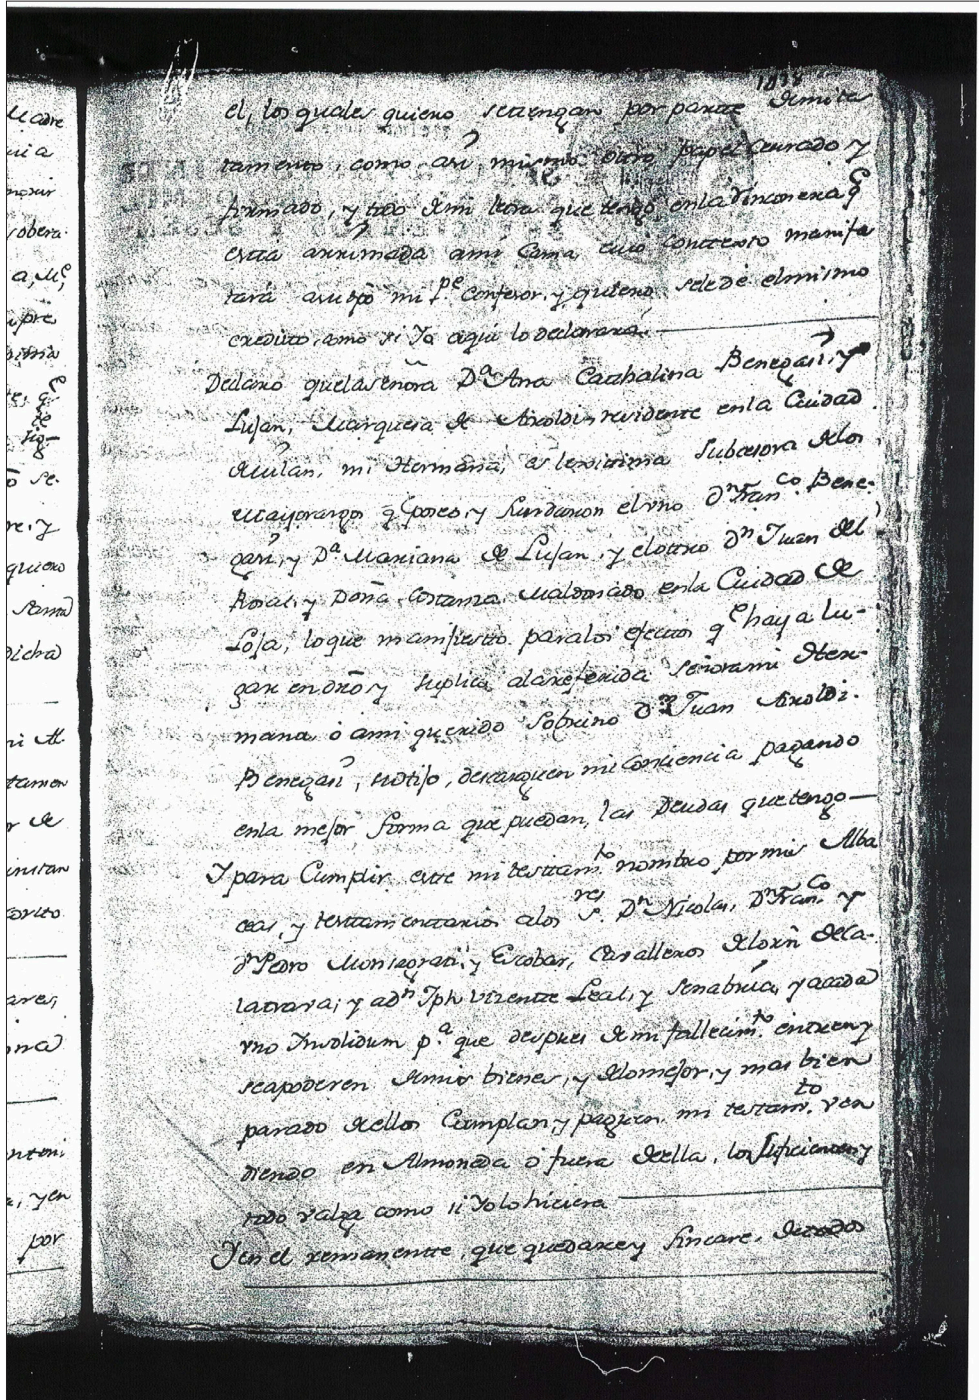 el, los quales quiero setengan por partte demi tes
tamento, como asi mismo otro papel Cerrado y
firmado, y todo demi letra que tengo enla Rinconera q̃
está arrimada ami Cama, cuio conttexto manifes
tará asutpõ mi Pe. Confesor, y quiero sele dé elmismo
credito, como si Yo aqui lo declarara.
Declaro quelaseñora Da. Ana Catthalina Benegasi, y
Lujan, Marquesa de Aroldi residente enla Ciudad
deMilan, mi Hermana, es lexittima Subcesora delos
Mayorazgos q̃ poseo, y fundaron el vno Dn. Franco. Bene-
gasi, y Da. Mariana de Lujan, y elotro Dn. Juan del
Rosal, y Doña Costanza Maldonado enla Ciudad de
Loja, loque manifiesto paralos efectos q̃ haya lu-
gar en dr̃o y suplico alareferida señorami Her-
mana ò ami querido Sobrino Dn. Juan Aroldi
Benegasi, suhijo, descarguen miconciencia pagando
enla mejor forma que puedan, las Deudas quetengo
Y para Cumplir este mi testtamto. nombro pormis Alba
ceas, y testtamenttarios alos Sres. Dn. Nicolas, Dn. Franco. y
Dn. Pedro Monsagrati, y Escobar, Cavalleros delorñ deCa-
latrava; y adn. Jph Vizentte Leal, y Senabria, y acada
vno Insolidum pa. que despues demi fallecimto. entren y
seapoderen demis bienes, y delomejor, y mas bien
parado dellos Cumplan y paguen mi testamto. ven
diendo en Almoneda ò fuera deella, los suficientes y
todo valga como si Yo lo hiciera
Y en el remanentte, que quedare y fincare, detodos
Madre
morir
a, Me.
quiero
Santa
Dicha
mi Al
tamen
r de
ares,
, y en
por